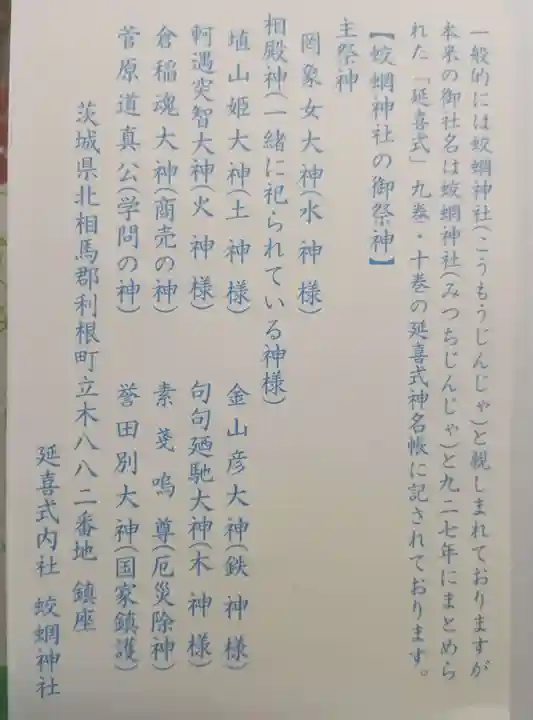 一般的には蛟蝄神社(こうもうじんじゃ)と親しまれておりますが
本来の御社名は蛟蝄神社(みつちじんじゃ)と九二七年にまとめら
れた「延喜式」九巻・十巻の延喜式神名帳に記されております。
【蛟蝄神社の御祭神】
主祭神
罔象女大神(水神様)
相殿神(一緒に祀られている神様)
埴山姫大神(土神様) 金山彦大神(鉄神様)
軻遇突智大神(火神様) 句句廼馳大神(木神様)
倉稲魂大神(商売の神) 素戔嗚尊(厄災除神)
菅原道真公(学問の神) 誉田別大神(国家鎮護)
茨城県北相馬郡利根町立木八八二番地 鎮座
延喜式内社 蛟蝄神社